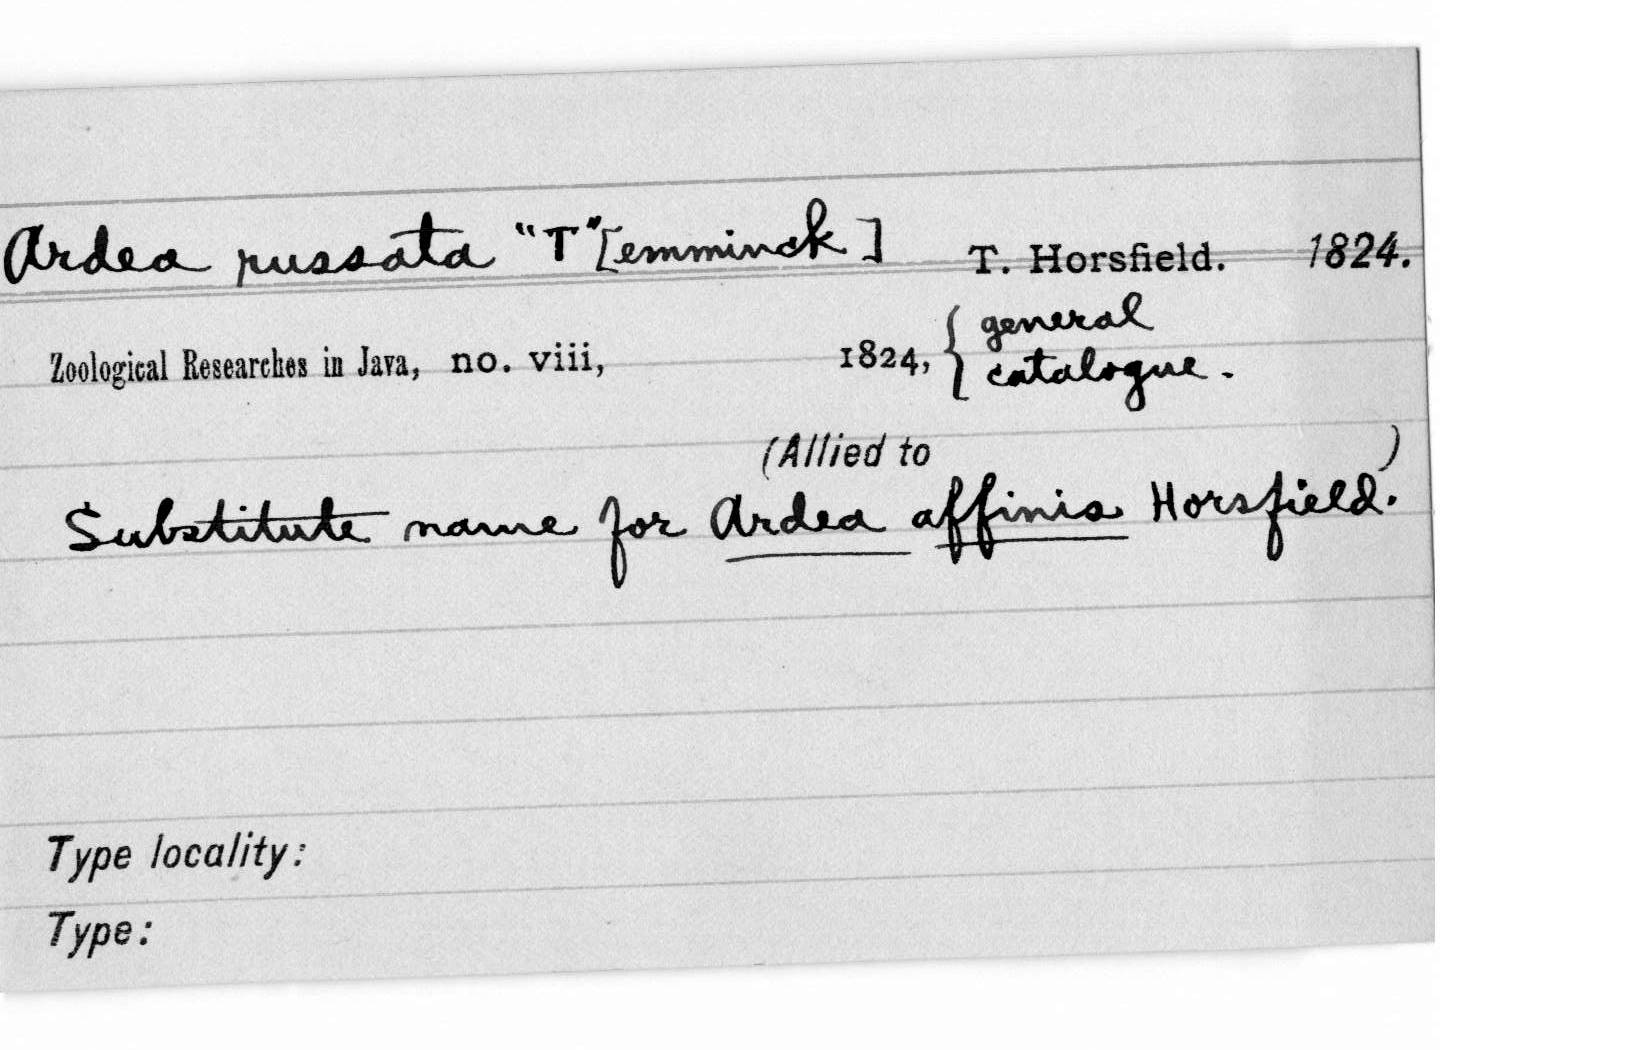 Ardea russata "T"[emminck] T. Horsfield. 1824.
Zoological Researches in Java, no. viii, 1824, { general catalogue.
(Allied to )
Substitute name for Ardea affinis Horsfield.
Type locality:
Type: